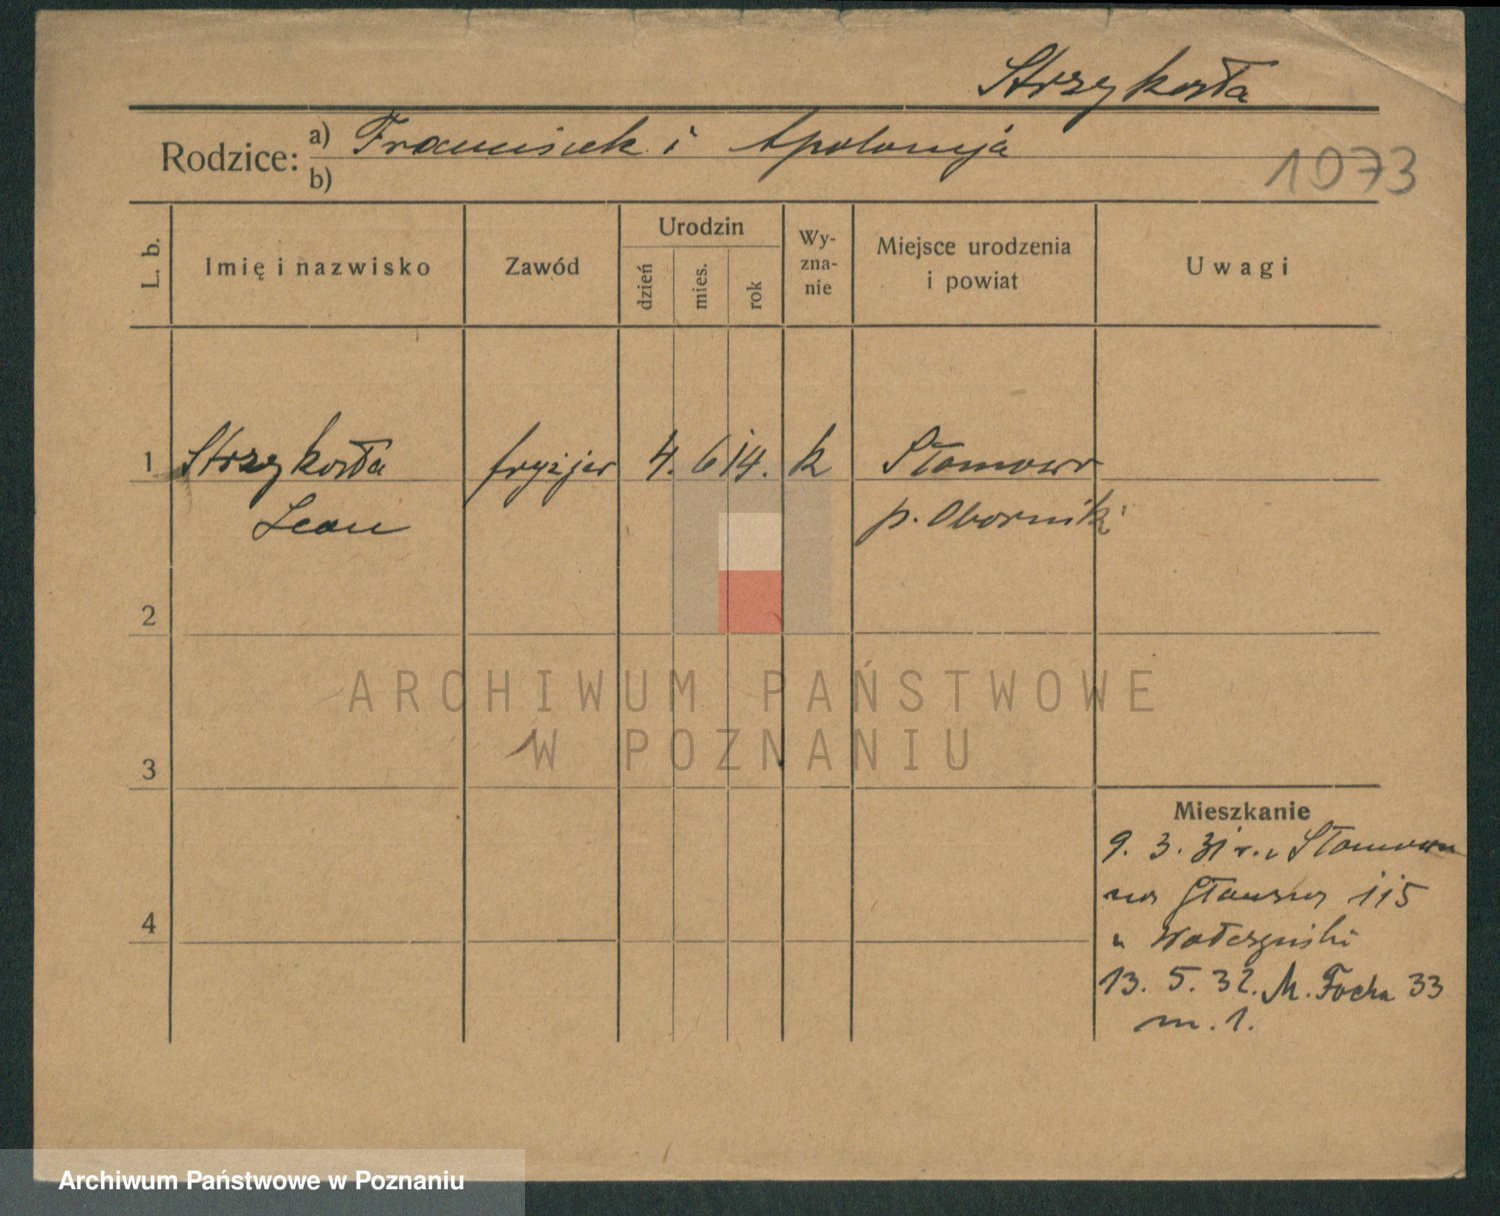 Strzykosła
Rodzice: a) Franciszek i Apolonja
b)
1073
L. b.
Imię i nazwisko
Zawód
Urodzin
dzień
mies.
rok
Wy-
zna-
nie
Miejsce urodzenia
i powiat
Uwagi
1 Strzykosła fryzjer 4. 6 14. k Słomowo
Leon p. Oborniki
2
3
4
Mieszkanie
9. 3. 31 r. z Słomowa
na 115
u
13. 5. 32. M. Focha 33
m. 1.
ARCHIWUM PAŃSTWOWE
W POZNANIU
Archiwum Państwowe w Poznaniu